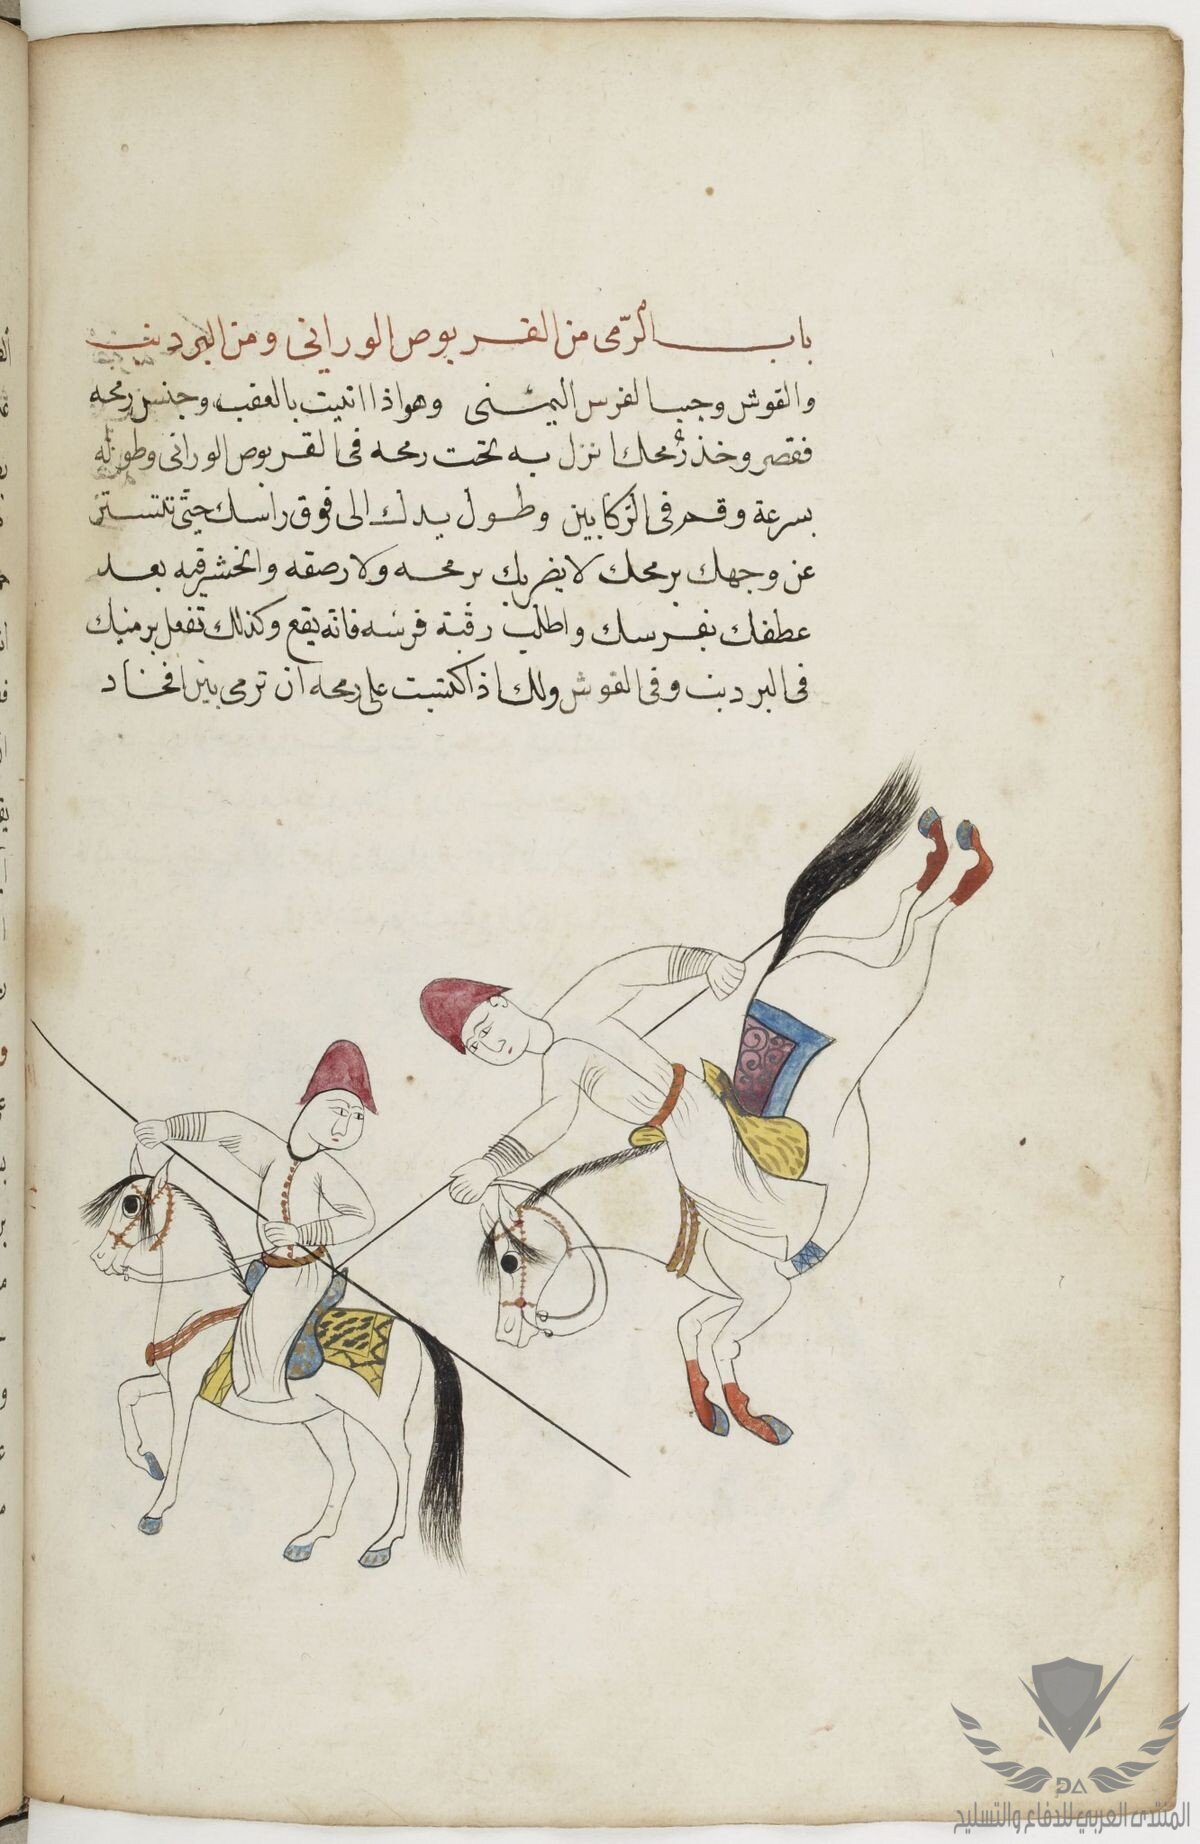 باب الرّمى من القربوص الورانى ومن البردبنت
والقوش وجبا الفرس اليمنى وهو اذا اتيت بالعقب وجنس رمحه
فقصر وخذ رُمحك انزل به تحت رمحه فى القربوص الورانى وطوله
بسرعة وقم فى الركابين وطول يدك الى فوق راسك حتى تلتستتر
عن وجهك برمحك لا يضربك برمحه ولا رصقه وانخشر فيه بعد
عطفك بفرسك واطلب رقبة فرسه فانه يقع وكذلك تفعل برميك
فى البردبنب وفى القوش ولك اذا كتبت على رمحه ان ترمى بين افخاد
DA
المنتدى العربي للدفاع والتسليح